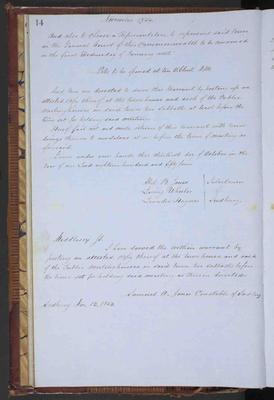 14
November 1854.
And also to choose a Representative to represent said town
in the General Court of this Commonwealth to be convened
on the first Wednesday of January next.
Polls to be closed at ten o'clock P.M.
And you are directed to serve this Warrant by posting up an
attested copy thereof at the town house and each of the Public
meetinghouses in said town two Sabbaths at least before the
time set for holding said meeting.
Hereof fail not and make return of this warrant with your
doings thereon to ourselves at or before the time of meeting as
aforesaid.
Given under our hands this thirtieth day of October in the
year of our Lord eighteen hundred and fifty four.
B. Jones
Loring Wheeler
Haynes
Selectmen
of
Sudbury
Middlesex ss.
I have served the within warrant by
posting an attested copy thereof at the town house and each
of the Public Meetinghouses in said town two Sabbaths before
the time set for holding said meeting as therein directed.
Samuel A. Jones Constable of Sudbury
Sudbury Nov. 12, 1854.